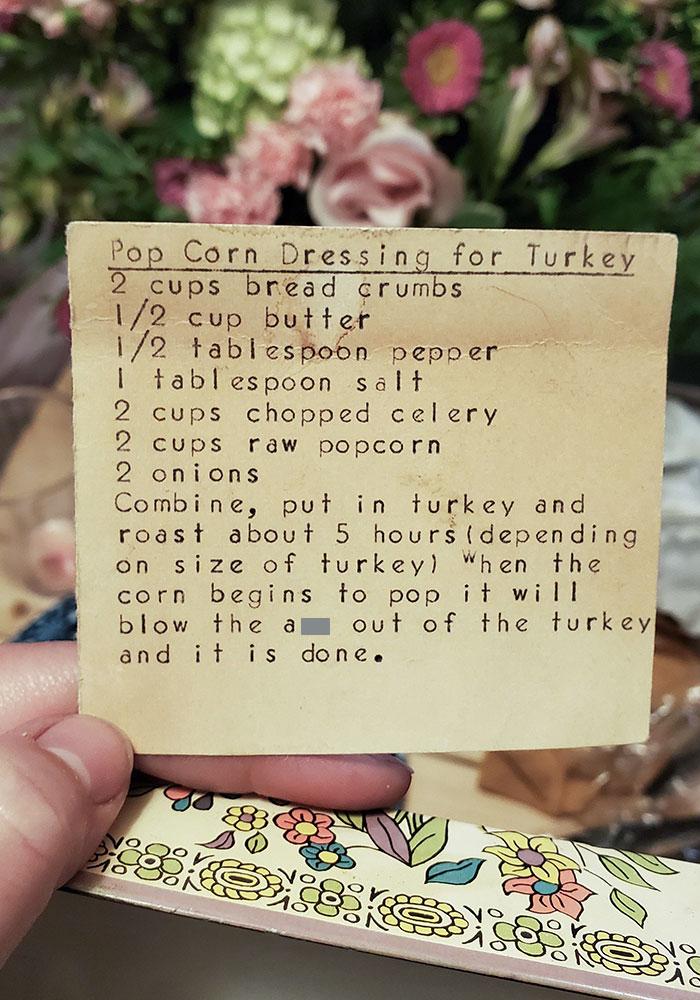 Pop Corn Dressing for Turkey
2 cups bread crumbs
1/2 cup butter
1/2 tablespoon pepper
1 tablespoon salt
2 cups chopped celery
2 cups raw popcorn
2 onions
Combine, put in turkey and
roast about 5 hours(depending
on size of turkey) When the
corn begins to pop it will
blow the a out of the turkey
and it is done.